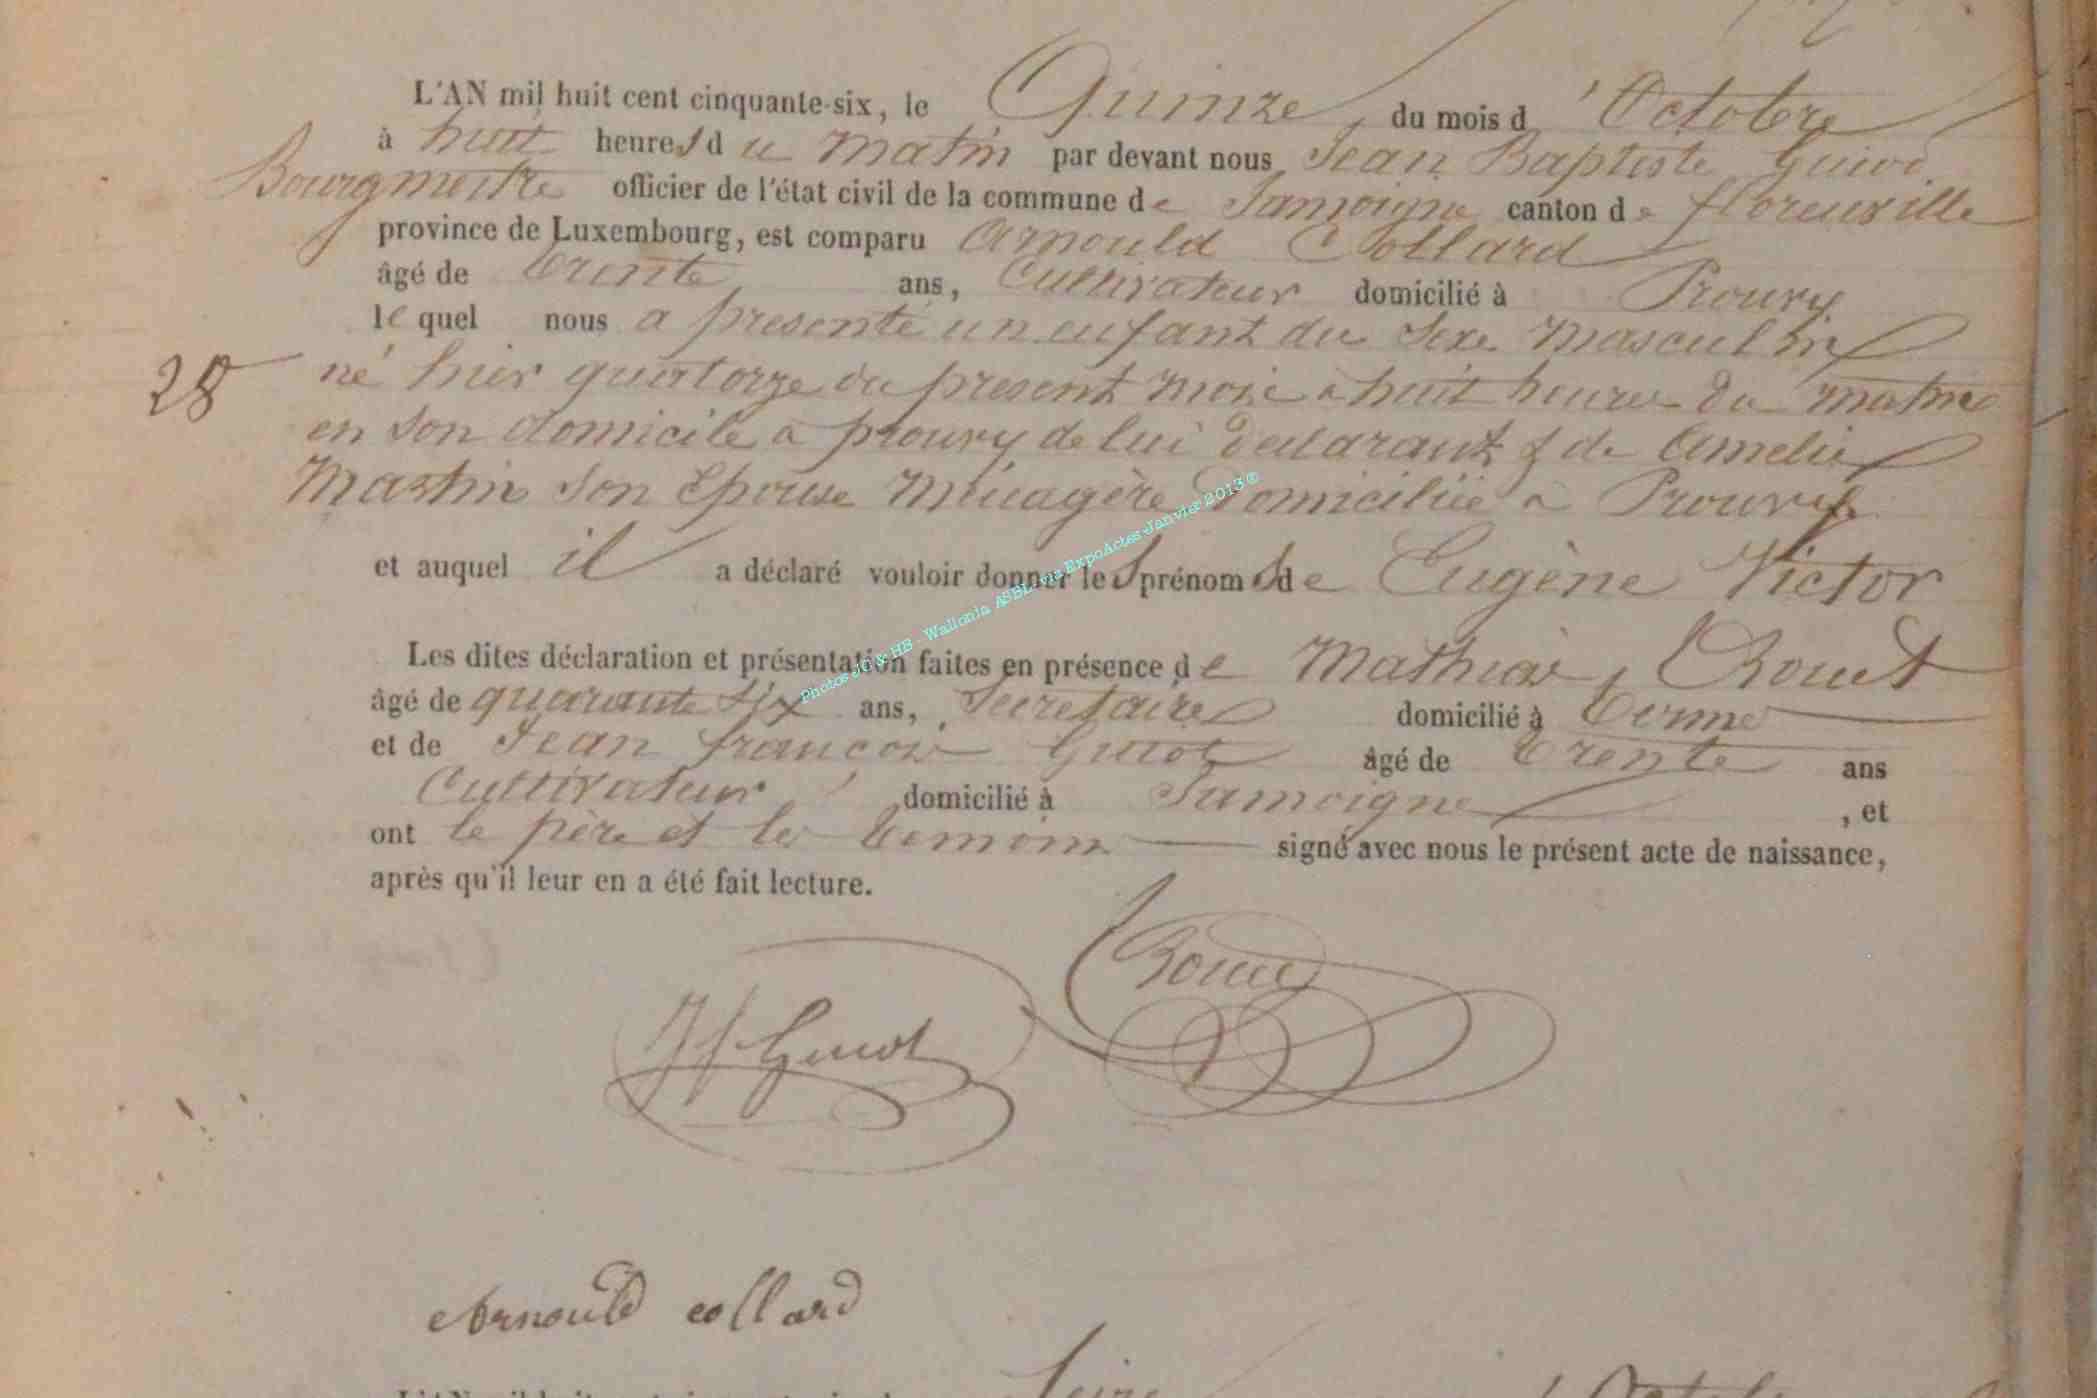 L'AN mil huit cent cinquante-six, le Quinze du mois d'Octobre
à huit heures du matin par devant nous Jean Baptiste
Bourgmestre officier de l'état civil de la commune de Jamoigne canton de florenville
province de Luxembourg, est comparu Arnould Collard
âgé de trente ans, Cultivateur domicilié à Prouvy
lequel nous a presenté un enfant du sexe masculin
28 né hier quatorze du present mois a huit heures du matin
en son domicile a prouvy de lui declarant & de Amelie
Martin son Epouse Ménagère Domiciliée a Prouvy
et auquel il a déclaré vouloir donner les prénoms de Eugène Victor
Les dites déclaration et présentation faites en présence de Mathias
âgé de quarante six ans, Secretaire domicilié à
et de Jean francois Guiot âgé de trente ans
Cultivateur domicilié à Jamoigne , et
ont le père et les temoins signé avec nous le présent acte de naissance,
après qu'il leur en a été fait lecture.
JF Guiot
Arnould collard
L'AN mil huit cent cinquante-six, le Seize d'Octobre
Photos JC & HB - Wallonia ASBL via ExpoActes Janvier 2013 ©